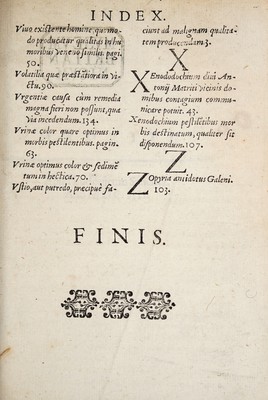 INDEX.
Viuo existente homine, quomo-
do producatur qualitas in hu
moribus veneno similis. pagi.
50.
Volatilia quæ præstātiora in vi-
ctu. 90.
Vrgentia causa cùm remedia
magna fieri non possunt, qua
via incedendum. 134.
Vrinæ color quare optimus in
morbis pestilentibus. pagin.
63.
Vrinæ optimus color & sedimē
tum in hectica. 70.
Vstio, aut putredo, præcipuè fa-
ciunt ad malignam qualita-
tem producendam 3.
X
Xenodochium diui An-
tonij Matriti vicinis do-
mibus contagium commu-
nicare potuit. 43.
Xenodochium pestilētibus mor
bis destinatum, qualiter sit
disponendum. 107.
Z
Zopyria antidotus Galeni.
103.
FINIS.